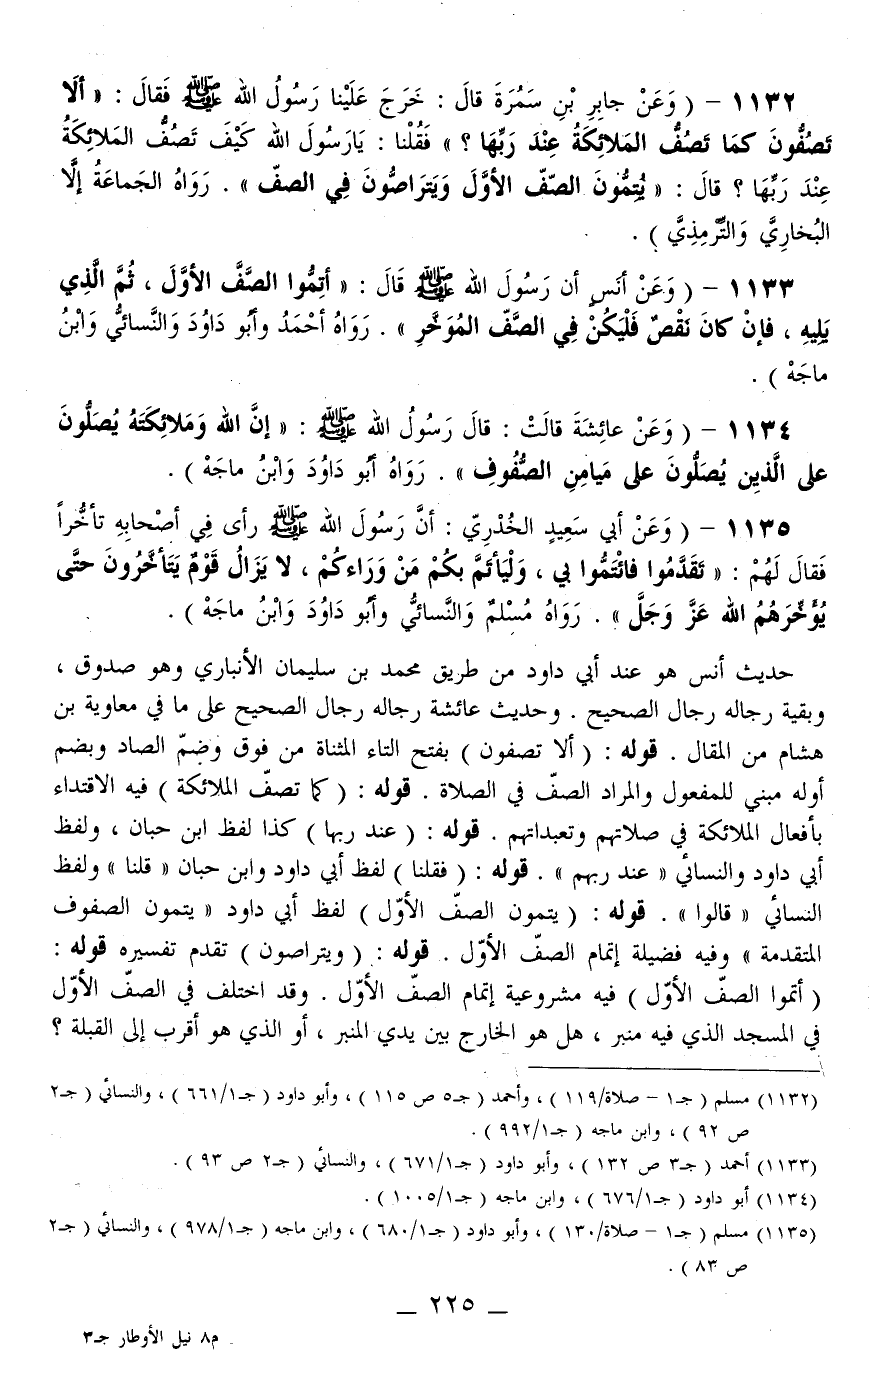 ١١٣٢ – ( وَعَنْ جابِرِ بْنِ سَمُرَةَ قالَ : خَرَجَ عَلَيْنا رَسُولُ الله ﷺ فَقالَ : « ألَا
تَصُفُّونَ كمَا تَصُفُّ المَلائِكَةُ عِنْدَ رَبِّهَا ؟ » فَقُلْنا : يَارَسُولَ الله كَيْفَ تَصُفُّ المَلائِكَةُ
عِنْدَ رَبِّهَا ؟ قالَ : « يُتِمُّونَ الصّفّ الأوَّلَ وَيَتَراصُّونَ فِي الصفّ » . رَوَاهُ الجَماعَةُ إلَّا
البُخارِيَّ وَالتِّرْمِذِيَّ ) .
١١٣٣ – ( وَعَنْ أنَسٍ أن رَسُولَ الله ﷺ قَالَ : « أتِمُّوا الصَّفَّ الأوَّلَ ، ثُمَّ الَّذِي
يَلِيهِ ، فإنْ كانَ نَقْصٌ فَلْيَكُنْ فِي الصَّفّ المُوَخَّرِ » . رَوَاهُ أحْمَدُ وأبُو دَاوُدَ وَالنَّسائُّي وَابْنُ
ماجَهْ ) .
١١٣٤ – ( وَعَنْ عائِشَةَ قالَتْ : قالَ رَسُولُ الله ﷺ : « إنَّ الله وَمَلائِكَتَهُ يُصَلُّونَ
على الَّذِين يُصَلُّونَ على مَيامِنِ الصُّفُوفِ » . رَوَاهُ أبُو دَاوُدَ وَابْنُ ماجَهْ ) .
١١٣٥ – ( وَعَنْ أبي سَعِيدٍ الخُدْرِيّ : أنَّ رَسُولَ الله ﷺ رأى فِي أصْحابِهِ تأخُّراً
فَقالَ لَهُمْ : « تَقَدَّمُوا فائْتَمُّوا بي ، وَلْيأتَمَّ بكُمْ مَنْ وَرَاءكُمْ ، لا يَزَالُ قَوْمٌ يَتَأخَّرُونَ حتَّى
يُؤَخِّرَهُمُ الله عَزَّ وَجَلَّ » . رَوَاهُ مُسْلمٌ وَالنَّسائُّي وأبُو دَاوُدَ وَابْنُ ماجَهْ ) .
حديث أنس هو عند أبي داود من طريق محمد بن سليمان الأنباري وهو صدوق ،
وبقية رجاله رجال الصحيح . وحديث عائشة رجاله رجال الصحيح على ما في معاوية بن
هشام من المقال . قوله : ( ألا تصفون ) بفتح التاء المثناة من فوق وَضمّ الصاد وبضم
أوله مبني للمفعول والمراد الصفّ في الصلاة . قوله : ( كما تصفّ الملائكة ) فيه الاقتداء
بأفعال الملائكة في صلاتهم وتعبداتهم . قوله : ( عند ربها ) كذا لفظ ابن حبان ، ولفظ
أبي داود والنسائي « عند ربهم » . قوله : ( فقلنا ) لفظ أبي داود وابن حبان « قلنا » ولفظ
النسائي « قالوا » . قوله : ( يتمون الصفّ الأوّل ) لفظ أبي داود « يتمون الصفوف
المتقدمة » وفيه فضيلة إتمام الصفّ الأوّل . قوله : ( ويتراصون ) تقدم تفسيره قوله :
( أتموا الصفّ الأوّل ) فيه مشروعية إتمام الصفّ الأوّل . وقد اختلف في الصفّ الأوّل
في المسجد الذي فيه منبر ، هل هو الخارج بين يدي المنبر ، أو الذي هو أقرب إلى القبلة ؟
(١١٣٢) مسلم ( جـ١ – صلاة/١١٩ ) ، وأحمد ( جـ٥ ص ١١٥ ) ، وأبو داود ( جـ١/٦٦١ ) ، والنسائي ( جـ٢
ص ٩٢ ) ، وابن ماجه ( جـ١/٩٩٢ ) .
(١١٣٣) أحمد ( جـ٣ ص ١٣٢ ) ، وأبو داود ( جـ١/٦٧١ ) ، والنسائي ( جـ٢ ص ٩٣ ) .
(١١٣٤) أبو داود ( جـ١/٦٧٦ ) ، وابن ماجه ( جـ١/١٠٠٥ ) .
(١١٣٥) مسلم ( جـ١ – صلاة/١٣٠ ) ، وأبو داود ( جـ١/٦٨٠ ) ، وابن ماجه ( جـ١/٩٧٨ ) ، والنسائي ( جـ٢
ص ٨٣ ) .
– ٢٢٥ –
م٨ نيل الأوطار جـ٣